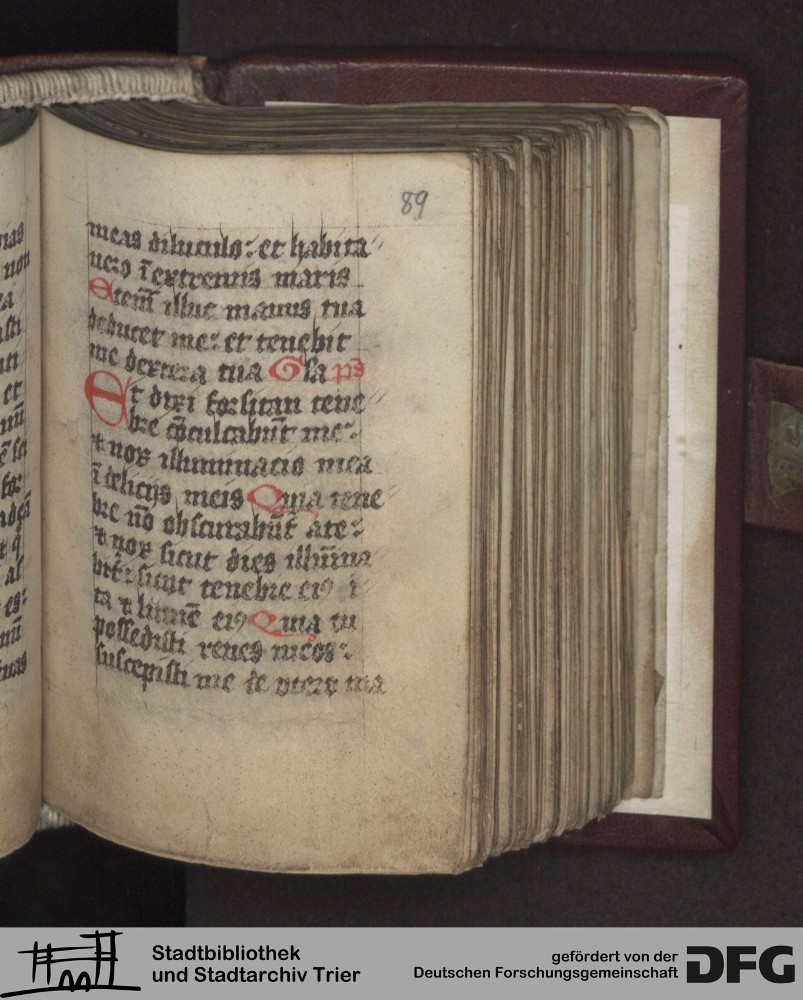 89
meas diluculo: et habita
uero ī extremis maris
Etem̄ illuc manus tua
deducet me: et tenebit
me dextera tua Gła ps
Et dixi forsitan tene
bre cōculcabūt me:
⁊ nox illuminacio mea
ī delicijs meis Quia tene
bre nō obscurabūt̄ a te:
⁊ nox sicut dies illūina
bit: sicut tenebre eiꝰ i
ta ⁊ lumē eiꝰ Quia tu
possedisti renes meos:
suscepisti me de vtero ma
Stadtbibliothek
und Stadtarchiv Trier
gefördert von der
Deutschen Forschungsgemeinschaft
DFG